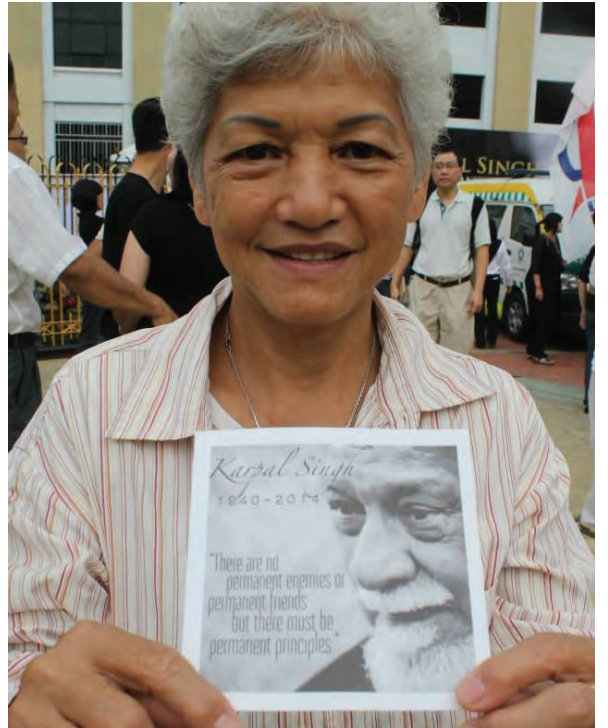 L SINGH
Karpal Singh
1940-2014
"There are no
permanent enemies or
permanent friends
but there must be
permanent principles."